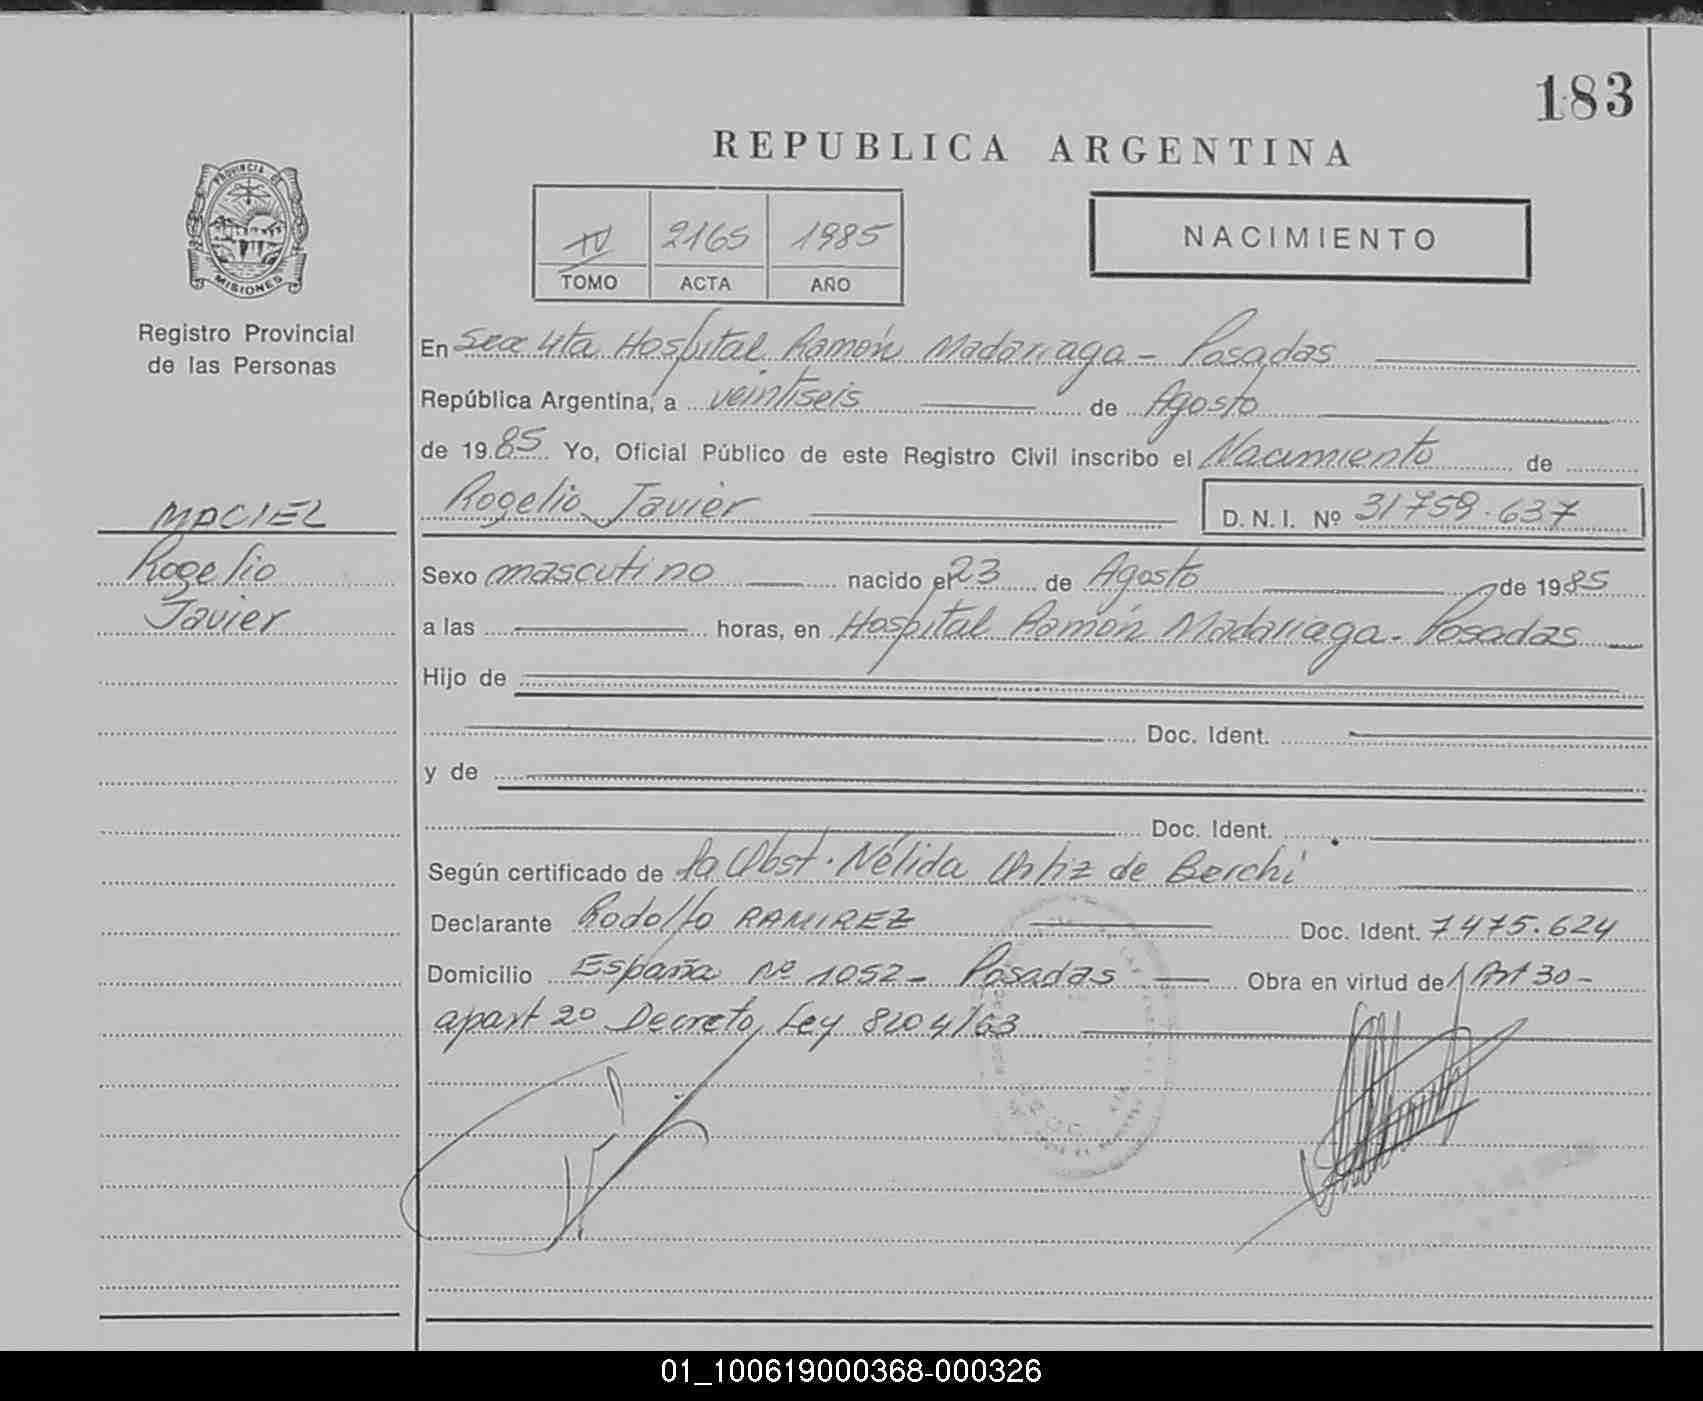 183
REPUBLICA ARGENTINA
PROVINCIA DE
MISIONES
Registro Provincial
de las Personas
IV 2165 1985
TOMO ACTA AÑO
NACIMIENTO
En Secc 4ta Hospital Ramón Madariaga - Posadas
República Argentina, a veintiseis de Agosto
de 1985 Yo, Oficial Público de este Registro Civil inscribo el Nacimiento de
Rogelio Javier D. N. I. Nº 31759.637
MACIEL
Rogelio
Javier
Sexo masculino nacido el 23 de Agosto de 1985
a las horas, en Hospital Ramón Madariaga - Posadas
Hijo de
Doc. Ident.
y de
Doc. Ident.
Según certificado de la Obst. Nélida Ortiz de Berchi
Declarante Rodolfo RAMIREZ Doc. Ident. 7475.624
Domicilio España Nº 1052 - Posadas Obra en virtud de Art 30 -
apart 2º Decreto Ley 8204/63
01_100619000368-000326